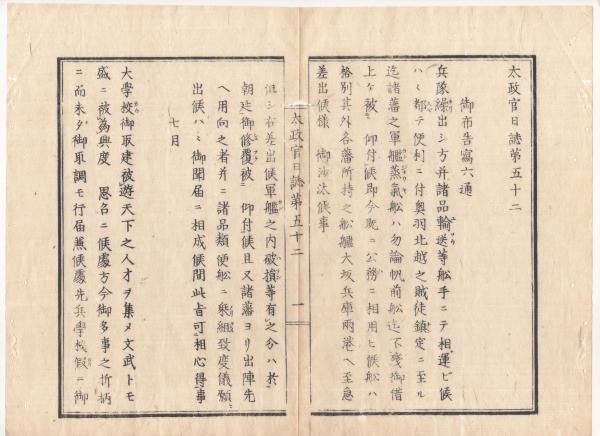 太政官日誌第五十二
御布告寫六通
兵隊繰出シ方并諸品輸送等舩手ニテ相運ビ候
ハヾ都テ便利ニ付奥羽北越之賊徒鎮定ニ至ル
迄諸藩之軍艦蒸氣舩ハ勿論帆前舩迄不殘御借
上ケ被 仰付候即今既ニ公務ニ相用ヒ候舩ハ
格別其外各藩所持之舩艦大坂兵庫兩港ヘ至急
差出候様 御沙汰候事
太政官日誌第五十二 一
但シ右差出候軍艦之内破損等有之分ハ於
朝廷御修覆被 仰付候且又諸藩ヨリ出陣先
ヘ用向之者并ニ諸品類便舩ニ乗組致度儀願
出候ハヾ御聞届ニ相成候間此旨可相心得事
七月
大學挍御取建被遊天下之人才ヲ集メ文武トモ
盛ニ被為興度 思名ニ候處方今御多事之折柄
ニ而未タ御取調モ行届兼候處先兵學挍假ニ御